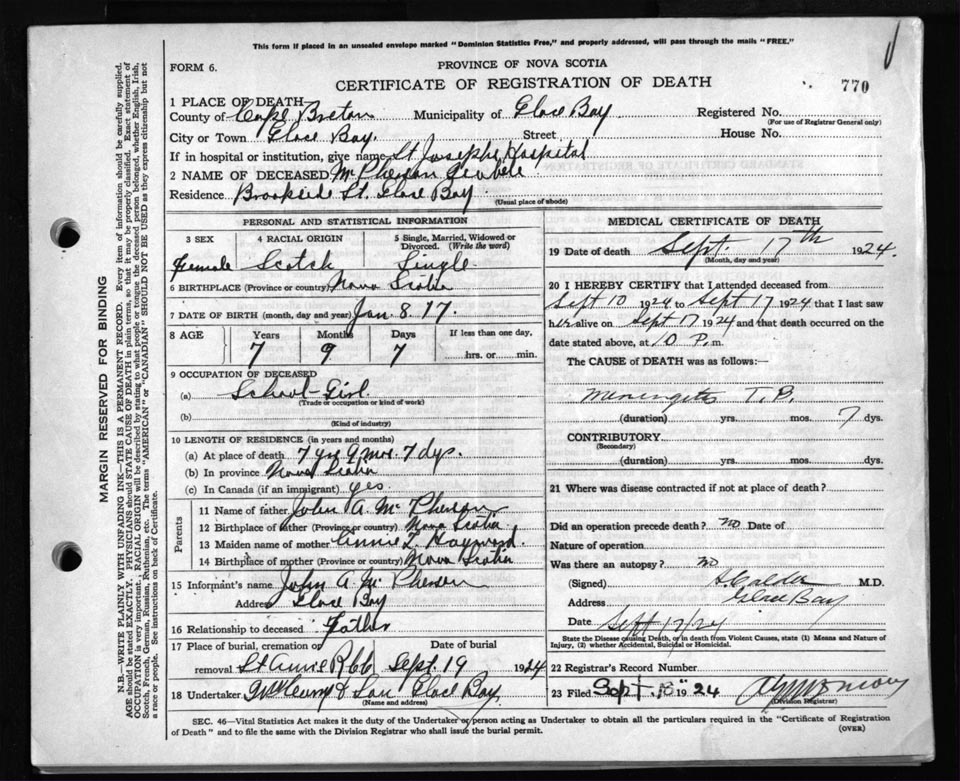 This form if placed in an unsealed envelope marked "Dominion Statistics Free," and properly addressed, will pass through the mails "FREE."
FORM 6.
PROVINCE OF NOVA SCOTIA
CERTIFICATE OF REGISTRATION OF DEATH
770
1 PLACE OF DEATH—
County of Cape Breton Municipality of Glace Bay Registered No.
(For use of Registrar General only)
City or Town Glace Bay Street House No.
If in hospital or institution, give name St Josephs Hospital
2 NAME OF DECEASED McPherson
Residence Brookside St. Glace Bay
(Usual place of abode)
PERSONAL AND STATISTICAL INFORMATION
3 SEX 4 RACIAL ORIGIN 5 Single, Married, Widowed or Divorced. (Write the word)
Female Scotch Single
6 BIRTHPLACE (Province or country) Nova Scotia
7 DATE OF BIRTH (month, day and year) Jan. 8. 17.
8 AGE Years Months Days If less than one day,
7 9 7 hrs. or min.
9 OCCUPATION OF DECEASED
(a) School-Girl
(Trade or occupation or kind of work)
(b)
(Kind of industry)
10 LENGTH OF RESIDENCE (in years and months)
(a) At place of death 7 yrs 9 mos. 7 dys.
(b) In province Nova Scotia
(c) In Canada (if an immigrant) yes
Parents
11 Name of father John A. McPherson
12 Birthplace of father (Province or country) Nova Scotia
13 Maiden name of mother Annie L. Hayward
14 Birthplace of mother (Province or country) Nova Scotia
15 Informant's name John A. McPherson
Address Glace Bay
16 Relationship to deceased Father
17 Place of burial, cremation or removal Date of burial
St Anne Sept. 19 1924
18 Undertaker & Son Glace Bay
(Name and address)
MEDICAL CERTIFICATE OF DEATH
19 Date of death Sept. 17th 1924.
(Month, day and year)
20 I HEREBY CERTIFY that I attended deceased from
Sept 10 1924 to Sept 17 1924 that I last saw
her alive on Sept 17 1924 and that death occurred on the
date stated above, at 10 P.m.
The CAUSE of DEATH was as follows:—
Meningitis T.B.
(duration) yrs. mos. 7 dys.
CONTRIBUTORY
(Secondary)
(duration) yrs. mos. dys.
21 Where was disease contracted if not at place of death?
Did an operation precede death? no Date of
Nature of operation
Was there an autopsy? no
(Signed) Calder M.D.
Address Glace Bay
Date Sept 17/24
State the Disease causing Death, or in death from Violent Causes, state (1) Means and Nature of
Injury, (2) whether Accidental, Suicidal or Homicidal.
22 Registrar's Record Number
23 Filed Sept. 18" 24
(Division Registrar)
SEC. 46—Vital Statistics Act makes it the duty of the Undertaker or person acting as Undertaker to obtain all the particulars required in the "Certificate of Registration
of Death" and to file the same with the Division Registrar who shall issue the burial permit.
(OVER)
MARGIN RESERVED FOR BINDING
N.B.—WRITE PLAINLY WITH UNFADING INK—THIS IS A PERMANENT RECORD. Every item of information should be carefully supplied.
AGE should be stated EXACTLY. PHYSICIANS should STATE CAUSE OF DEATH in plain terms, so that it may be properly classified. Exact statement of
OCCUPATION is very important. RACIAL ORIGIN will be described by stating to what people or tongue the deceased person belonged, whether English, Irish,
Scotch, French, German, Russian, Ruthenian, etc. The terms "AMERICAN" or "CANADIAN" SHOULD NOT BE USED as they express citizenship but not
a race or people. See instructions on back of Certificate.